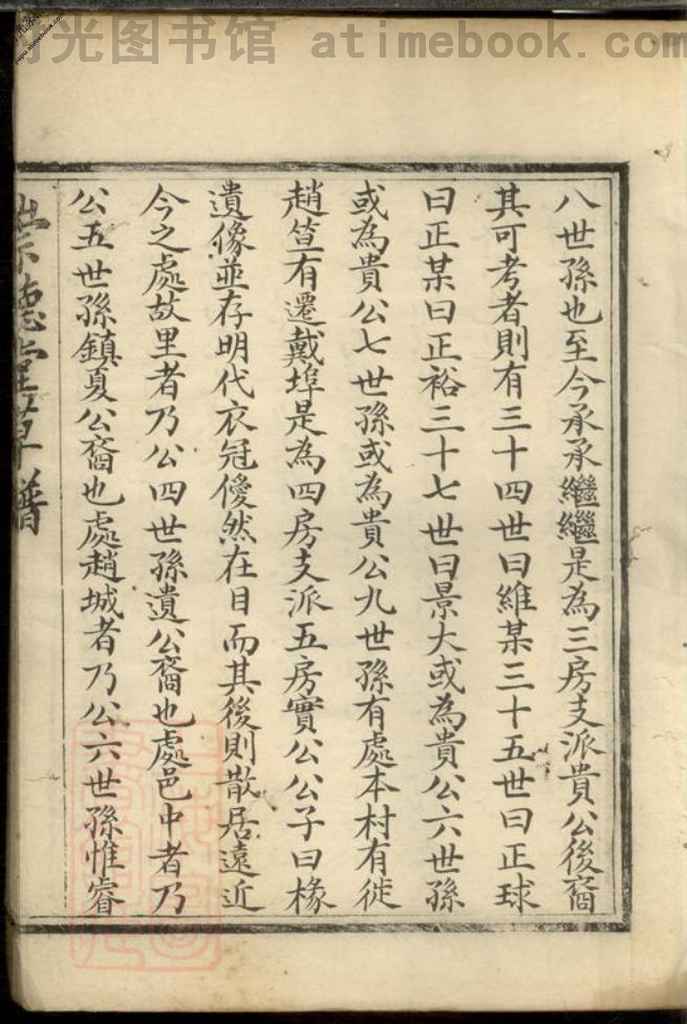 光图书馆 atimebook.com
八世孫也至今承承繼繼是為三房支派貴公後裔
其可考者則有三十四世曰維某三十五世曰正球
曰正某曰正裕三十七世曰景大或為貴公六世孫
或為貴公七世孫或為貴公九世孫有處本村有徙
趙笪有遷戴埠是為四房支派五房實公公子曰椽
遺像並存明代衣冠儼然在目而其後則散居遠近
今之處故里者乃公四世孫遺公裔也處邑中者乃
公五世孫鎮夏公裔也處趙城者乃公六世孫惟睿
崇德堂草譜